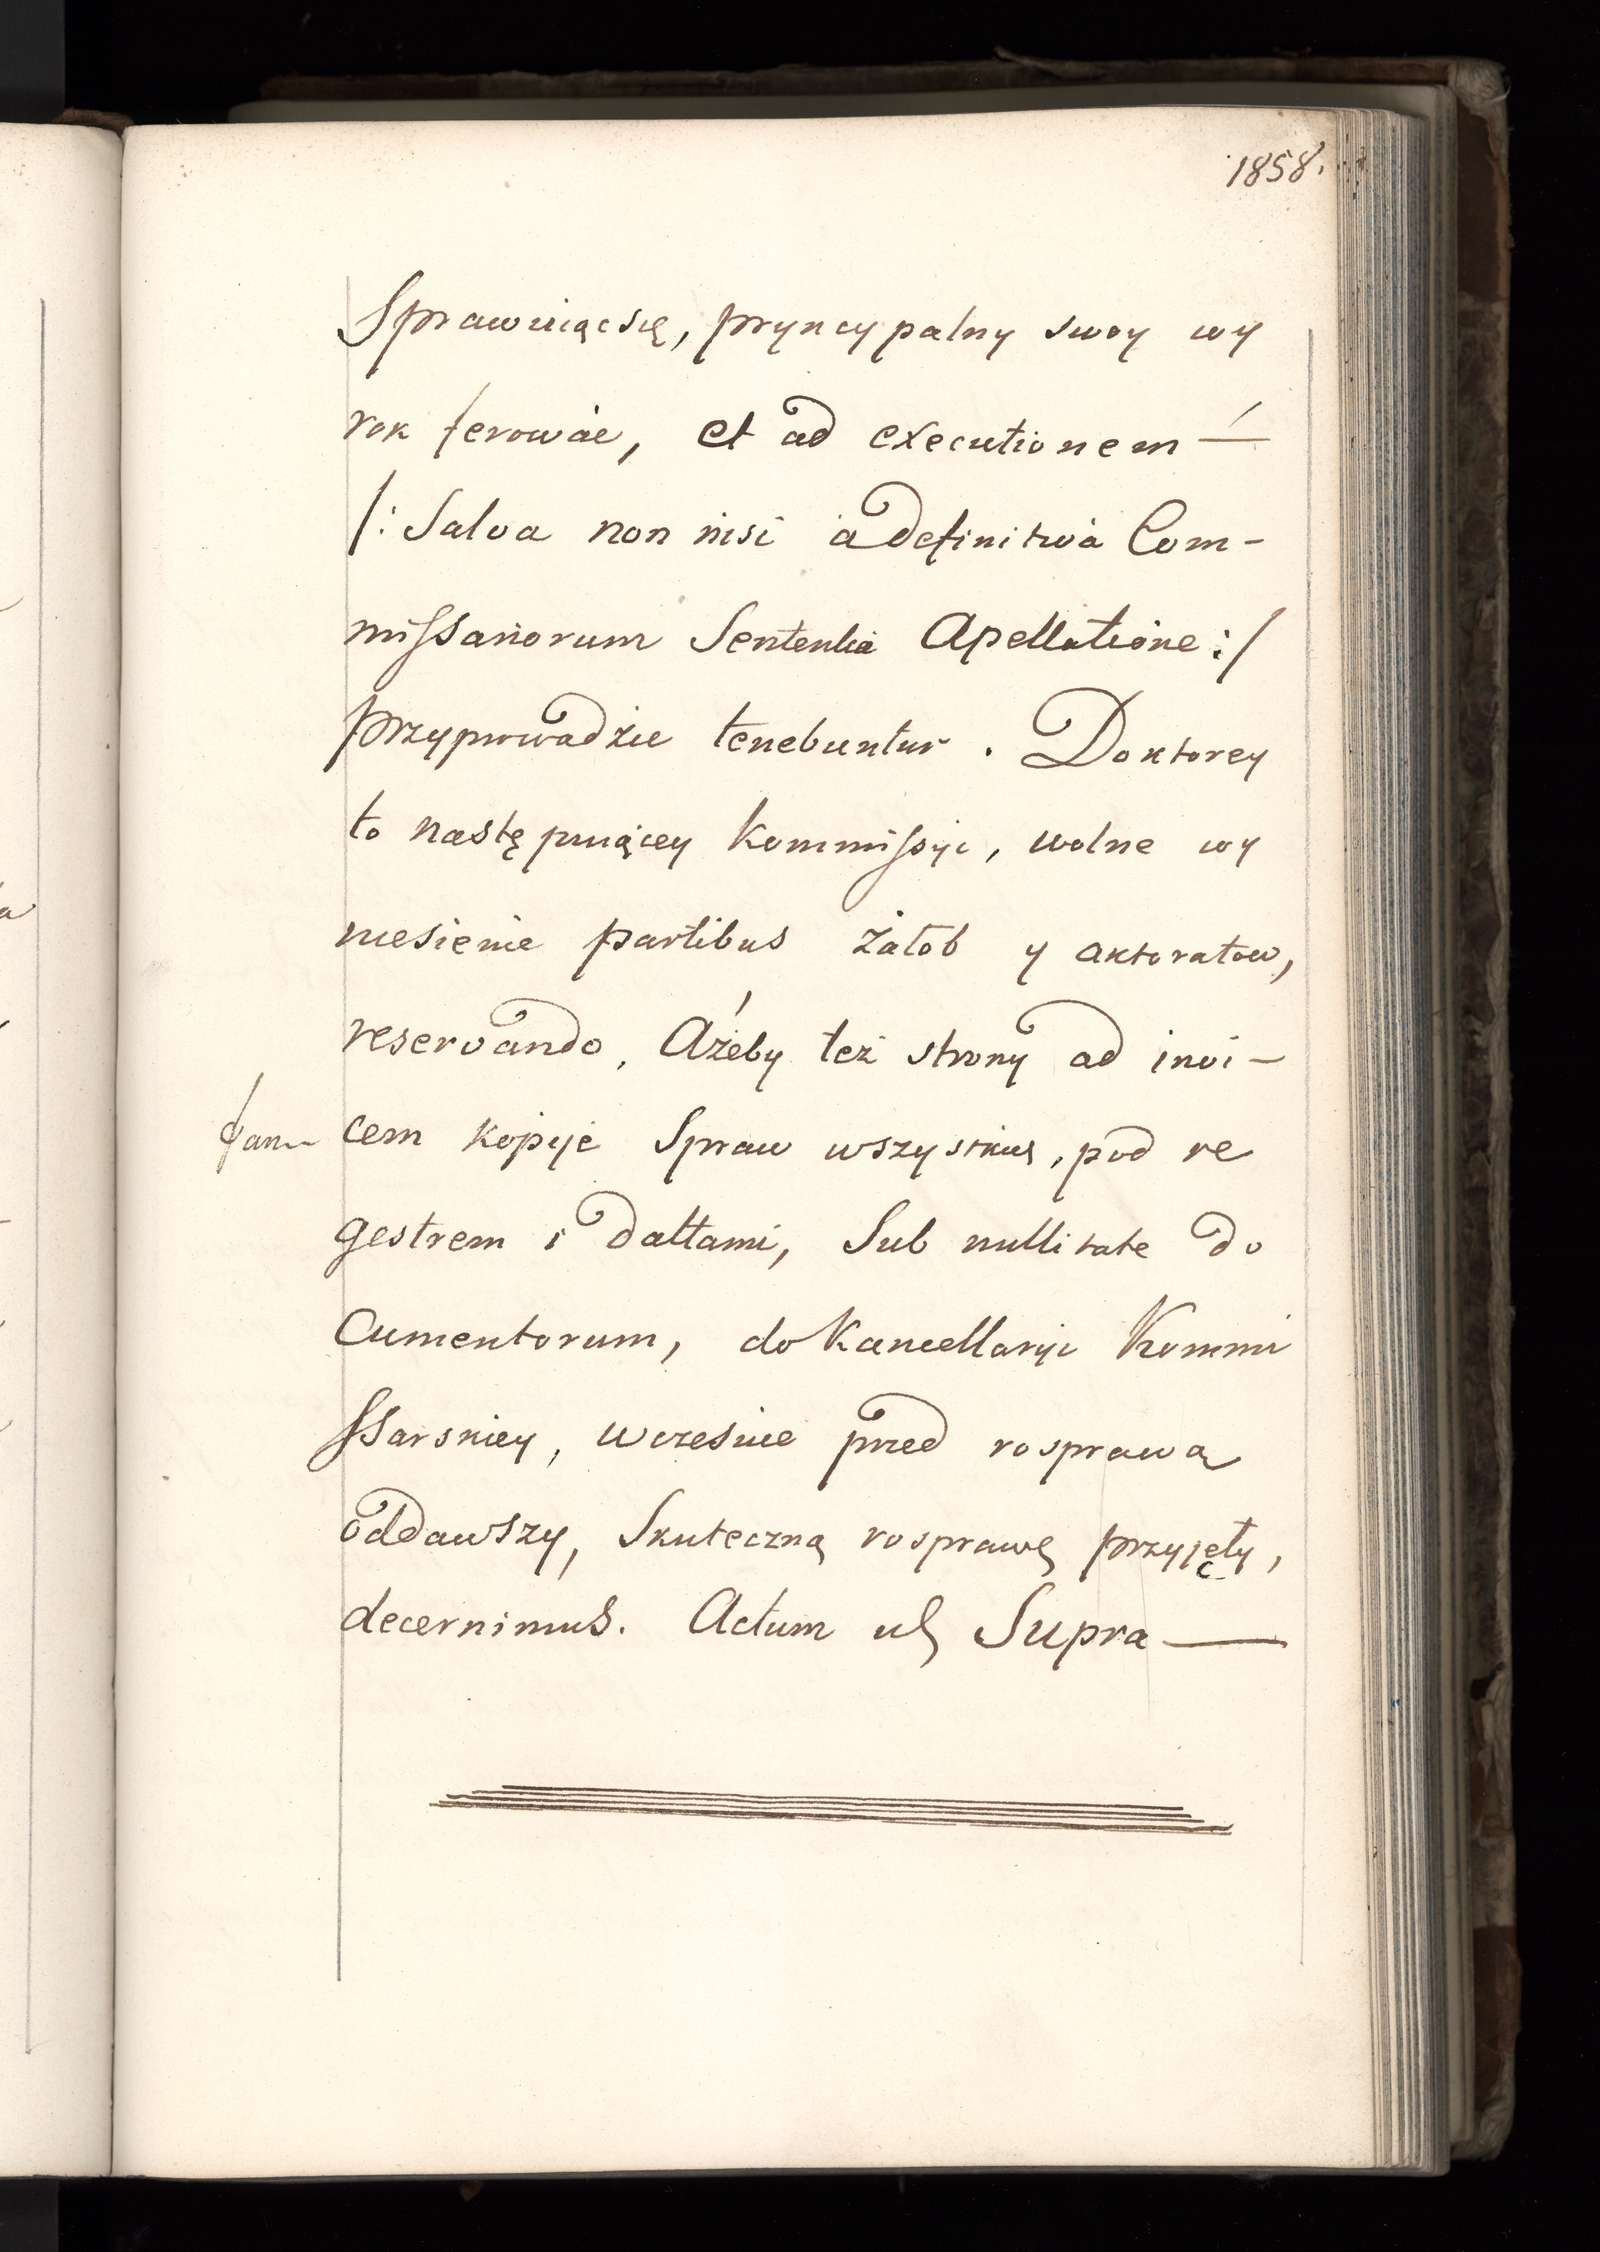 1858.
Sprawuiącsię, pryncypalny swoy wy
rok ferowáe, et ad executionem —
/: Salva non nisi á definitivá Com-
missariorum Sententiá Apellatione :/
przyprowadzie tenebuntur. Doktorey
to następuiącey kommissyi, wolne wy
niesienie partibus żałob y aktoratow,
reservando. Ażeby też strony ad invi-
cem kopije Spraw wszystkie, pod re
gestrem i dattami, Sub nullitate do
cumentorum, do Kancellaryi Kommi
ssarskiey, wcześnie przed rosprawą
oddawszy, Skuteczną rosprawę przyjęły,
decernimus. Actum ut Supra —